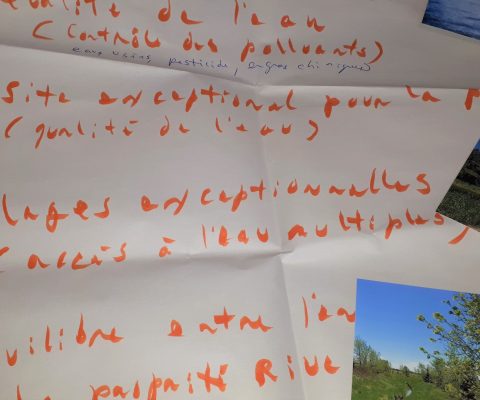 ualité de l'eau
(contrôle des polluants)
eaux usées, pesticide, engrais chimiques
site exceptional pour la p
(qualité de l'eau)
lages exceptionnalles
(accès à l'eau multiples)
uilibre entre l'en
Rive